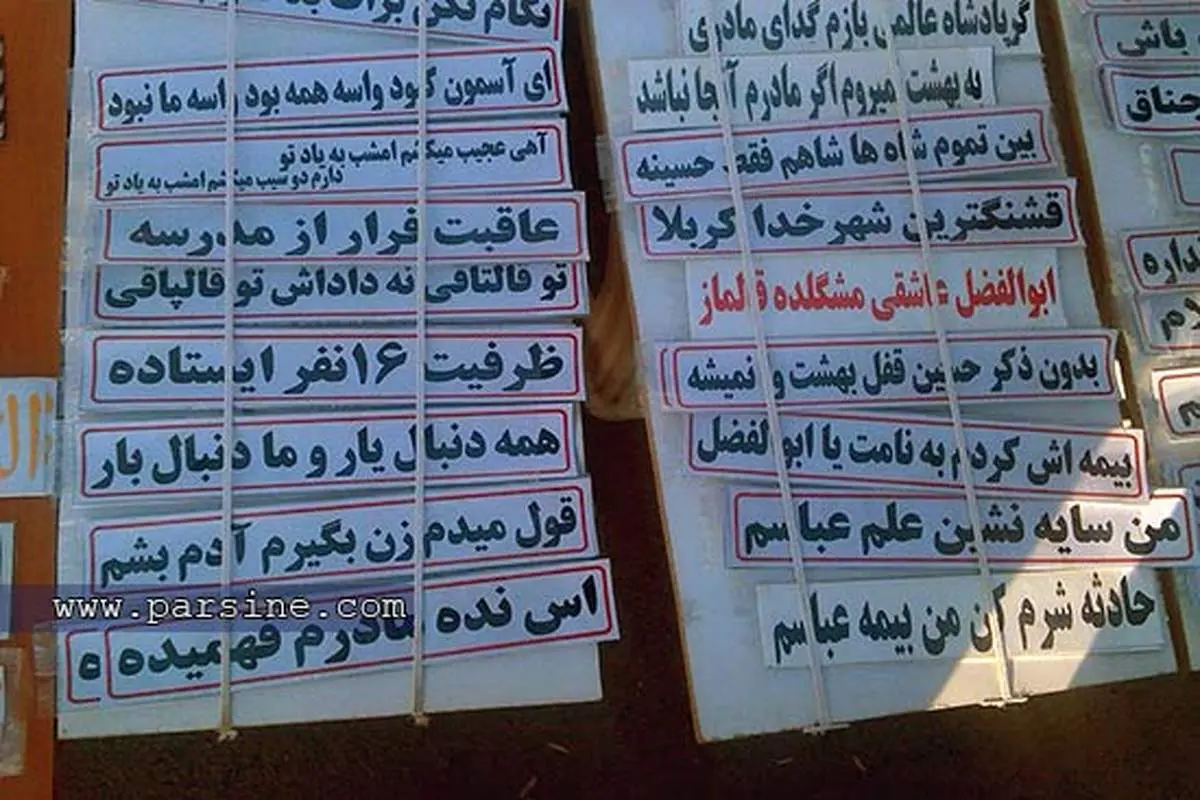 گریادشاه عالمی بازم گدای مادری
به بهشت نمیروم اگر مادرم آنجا نباشد
بین تموم شاه ها شاهم فقط حسینه
قشنگترین شهر خدا کربلا
ابوالفضل عاشقی مشگلده قالماز
بدون ذکر حسین قفل بهشت وا نمیشه
بیمه اش کردم به نامت یا ابوالفضل
من سایه نشین علم عباسم
حادثه شرم کن من بیمه عباسم
نگام نکن برات بد
ای آسمون کبود واسه همه بود واسه ما نبود
آهی عجیب میکشم امشب به یاد تو
دارم دو سیب میکشم امشب به یاد تو
عاقبت فرار از مدرسه
تو قالتاقی نه داداش تو قالپاقی
ظرفیت ۱۶نفر ایستاده
همه دنبال یار و ما دنبال بار
قول میدم زن بگیرم آدم بشم
اس نده مادرم فهمیده
ه
باش
جناق
نداره
www.parsine.com